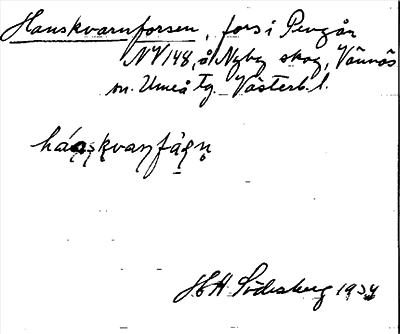 Hanskvarnforsen, fors i Pengån
NV148, å Nyby skog, Vännäs
sn. Umeå tg. Västerb. l.
SHH Söderberg 1934